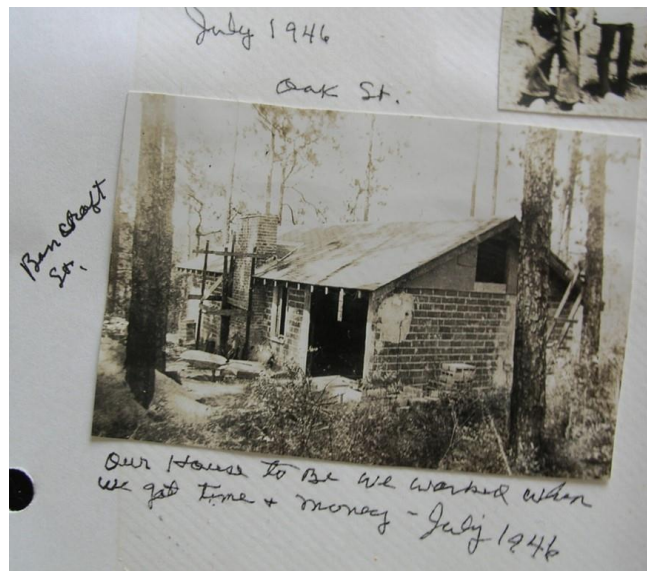 July 1946
Oak St.
Bancroft
St.
Our House to Be we worked when
we got time + money - July 1946